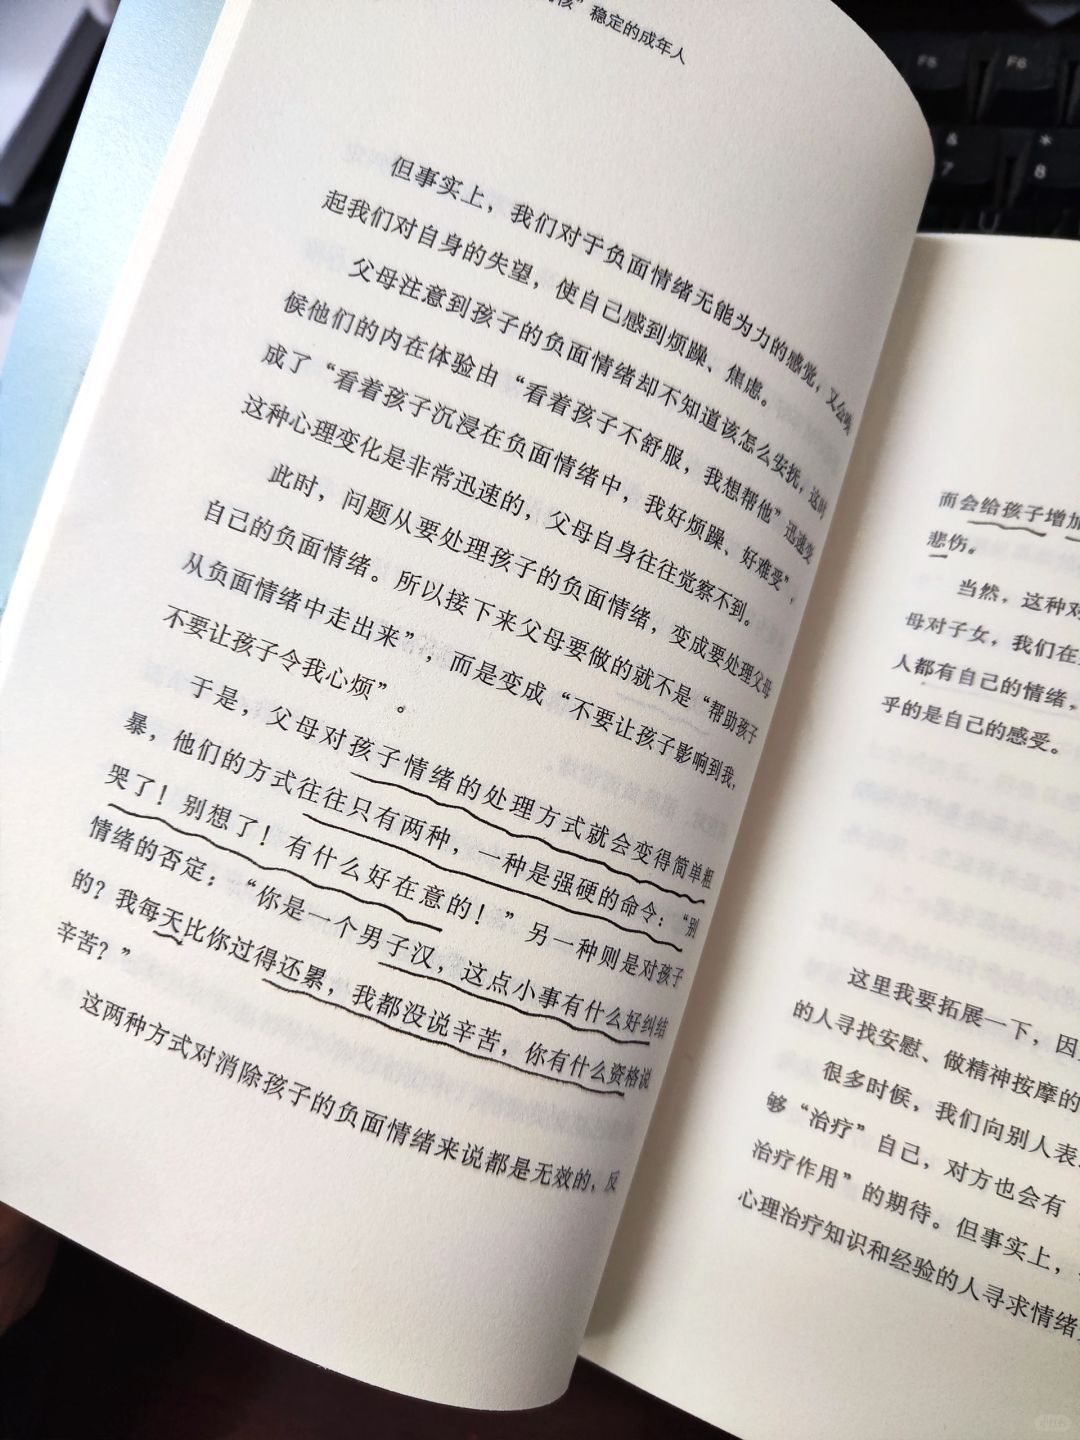 核”稳定的成年人
但事实上，我们对于负面情绪无能为力的感觉，又会唤
起我们对自身的失望，使自己感到烦躁、焦虑。
父母注意到孩子的负面情绪却不知道该怎么安抚，这时
候他们的内在体验由“看着孩子不舒服，我想帮他”迅速变
成了“看着孩子沉浸在负面情绪中，我好烦躁、好难受”，
这种心理变化是非常迅速的，父母自身往往觉察不到。
此时，问题从要处理孩子的负面情绪，变成要处理父母
自己的负面情绪。所以接下来父母要做的就不是“帮助孩子
从负面情绪中走出来”，而是变成“不要让孩子影响到我，
不要让孩子令我心烦”。
于是，父母对孩子情绪的处理方式就会变得简单粗
暴，他们的方式往往只有两种，一种是强硬的命令：“别
哭了！别想了！有什么好在意的！”另一种则是对孩子
情绪的否定：“你是一个男子汉，这点小事有什么好纠结
的？我每天比你过得还累，我都没说辛苦，你有什么资格说
辛苦？”
这两种方式对消除孩子的负面情绪来说都是无效的，反
而会给孩子增加
悲伤。
当然，这种对
母对子女，我们在
人都有自己的情绪，
乎的是自己的感受。
这里我要拓展一下，因
的人寻找安慰、做精神按摩的
很多时候，我们向别人表
够“治疗”自己，对方也会有
治疗作用”的期待。但事实上，
心理治疗知识和经验的人寻求情绪
F5
F6
&
7
*
8
U